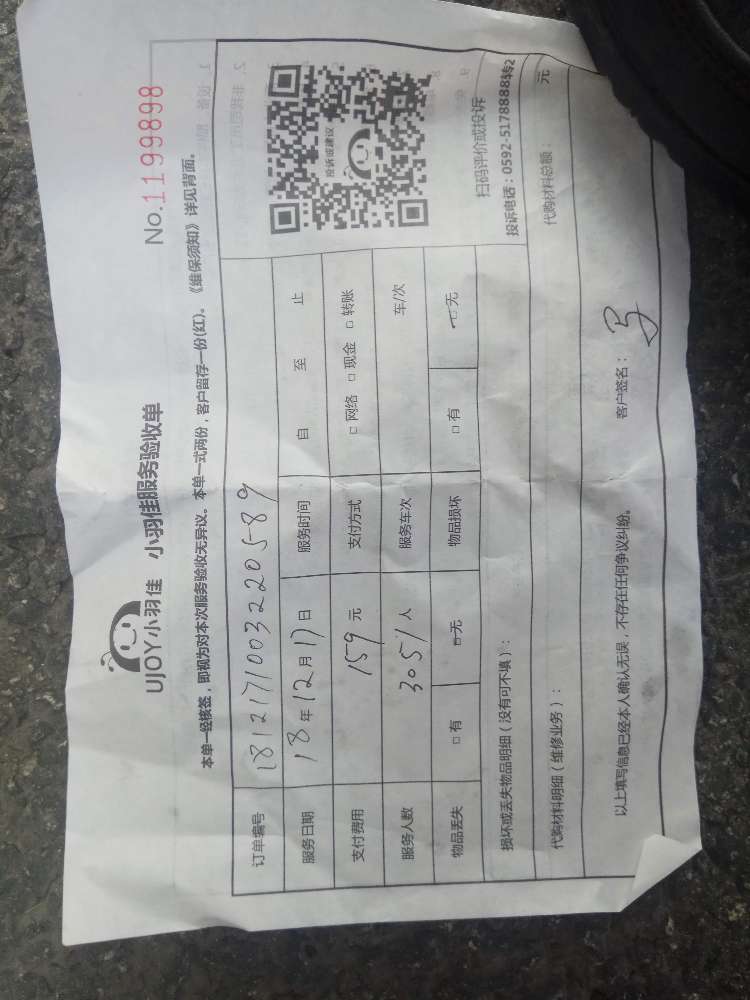 No.1199898
UJOY小羽佳 小羽佳服务验收单
本单一经核签，即视为对本次服务验收无异议。本单一式两份，客户留存一份(红)。《维保须知》详见背面。
订单编号 181217100322０589
服务日期 18年12月17日 服务时间 自 至 止
支付费用 159元 支付方式 □网络 □现金 □转账
服务人数 3051人 服务车次 车/次
物品丢失 □有 □无 物品损坏 □有 □无
投诉或建议
扫码评价或投诉
投诉电话：0592-5178888转2
损坏或丢失物品明细（没有可不填）：
代购材料明细（维修业务）： 代购材料总额： 元
以上填写信息已经本人确认无误，不存在任何争议纠纷。
客户签名：